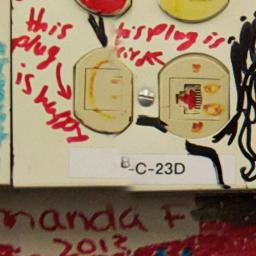 this
plug
is happy
this plug is
sick
B-C-23D
manda F
2013